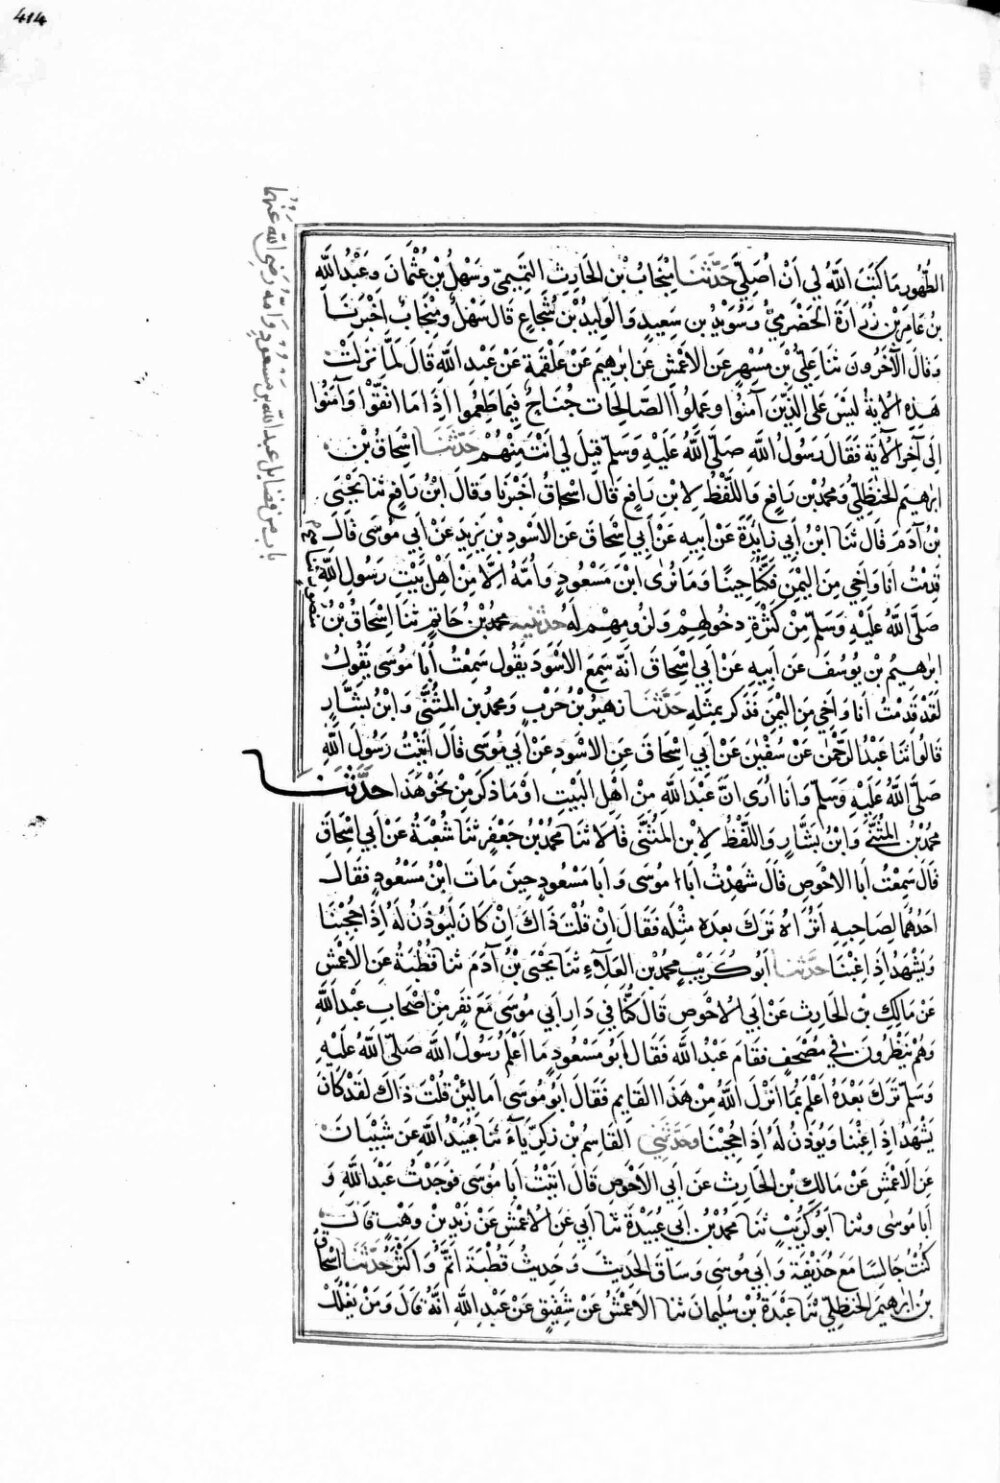 414
باب من فضايل عبد الله بن مسعود وامه رضي الله عنهما
الطُّهُورِ مَا كَتَبَ اللَّهُ لِي اَنْ اُصَلِّيَ حَدَّثَنَا مِنْجَابُ بْنُ الحَارِثِ التَّمِيمِيُّ وَسَهْلُ بْنُ عُثْمَانَ وَعَبْدُ اللَّهِ
بْنُ عَامِرِ بْنِ زُرَارَةَ الحَضْرَمِيُّ وَسُوَيْدُ بن سَعِيدٍ وَالوَلِيدُ بْنُ شُجَاعٍ قَالَ سَهْلٌ وَمِنْجَابٌ اَخْبَرَنَا
وَقَالَ الآخَرُونَ ثنَا عَلِيُّ بْنُ مُسْهِرٍ عَنِ الاَعْمَشِ عَن ابْرهِيمَ عَنْ عَلْقَمَةَ عَنْ عَبْدِ اللَّهِ قَالَ لَمَّا نَزَلَتْ
هَذِهِ الايَةُ لَيْسَ عَلَى الَّذِينَ آمَنُوا وَعَمِلُوا الصَّالِحَاتِ جُنَاحٌ فِيمَا طَعِمُوا اِذَا مَا اتَّقَوْا وَآمَنُوا
اِلَى آخِرِ الآيَةِ فَقَالَ رَسُولُ اللَّهِ صَلَّى اللَّهُ عَلَيْهِ وَسَلَّمَ قِيلَ لِي اَنْتَ مِنْهُمْ حَدَّثَنَا اِسْحَاقُ بْنُ
ابْرهِيمَ الحَنْظَلِيُّ وَمُحَمَّدُ بْنُ رَافِعٍ وَاللَّفْظُ لاِبْنِ رَافِعٍ قَالَ اسْحَاقُ اَخْبَرَنَا وَقَالَ ابْنُ رَافِعٍ ثنَا يَحْيَى
بْنُ آدَمَ قَالَ ثنَا ابْنُ اَبِي زَائِدَةَ عَنْ اَبِيهِ عَنْ اَبِي اِسْحَاقَ عَنِ الاَسْوَدِ بْنِ يَزِيدَ عَنْ اَبِي مُوسَى قَالَ
قَدِمْتُ اَنَا وَاَخِي مِنَ اليَمَنِ فَكُنَّا حِينًا وَمَا نُرَى ابْنَ مَسْعُودٍ وَاُمَّهُ اِلَّا مِنْ اَهْلِ بَيْتِ رَسُولِ اللَّهِ
صَلَّى اللَّهُ عَلَيْهِ وَسَلَّمَ مِنْ كَثْرَةِ دُخُولِهِمْ وَلُزُومِهِمْ لَهُ حَدَّثَنِيهِ مُحَمَّدُ بْنُ حَاتِمٍ ثنَا اِسْحَاقُ بْنُ
مَنْصُورٍ
ابْرهِيمُ بْن يُوسُفَ عَن اَبِيهِ عَنْ اَبِي اِسْحَاقَ اَنَّهُ سَمِعَ الاَسْوَدَ يَقُولُ سَمِعْتُ اَبَا مُوسَى يَقُولُ
لَقَدْ قَدِمْتُ اَنَا وَاَخِي مِنَ اليَمَنِ فَذَكَرَ بِمِثْلِهِ حَدَّثَنَا زُهَيْرُ بْنُ حَرْبٍ وَمُحَمَّدُ بن المُثَنَّى وَابْنُ بَشَّارٍ
قَالُوا ثنَا عَبْدُ الرَّحْمَنِ عَنْ سُفْيٰنَ عَنْ اَبِي اِسْحَاقَ عَنِ الاَسْوَدِ عَنْ اَبِي مُوسَى قَالَ اَتَيْتُ رَسُولَ اللَّهِ
صَلَّى اللَّهُ عَلَيْهِ وَسَلَّمَ وَاَنَا اُرَى اَنَّ عَبْدَ اللَّهِ مِنْ اَهْلِ البَيْتِ اَوْ مَا ذَكَرَ مِنْ نَحْوِ هَذَا حَدَّثَنَا
مُحَمَّدُ بْنُ المُثَنَّى وَابْنُ بَشَّارٍ وَاللَّفْظُ لاِبْنِ المُثَنَّى قَالَا ثنَا مُحَمَّدُ بْنُ جَعْفَرٍ ثنَا شُعْبَةُ عَنْ اَبِي اِسْحَاقَ
قَالَ سَمِعْتُ اَبَا الاَحْوَصِ قَالَ شَهِدْتُ اَبَا مُوسَى وَاَبَا مَسْعُودٍ حِينَ مَاتَ ابْنُ مَسْعُودٍ فَقَالَ
اَحَدُهُمَا لِصَاحِبِهِ اَتُرَاهُ تَرَكَ بَعْدَهُ مِثْلَهُ فَقَالَ اِنْ قُلْتَ ذَاكَ اِنْ كَانَ لَيُوذَنُ لَهُ اِذَا حُجِبْنَا
وَيَشْهَدُ اِذَا غِبْنَا حَدَّثَنَا اَبُو كُرَيْبٍ مُحَمَّدُ بْنُ العَلَاءِ ثنَا يَحْيَى بْنُ آدَمَ ثنَا قُطْبَةُ عَنِ الاَعْمَشِ
عَنْ مَالِكِ بْنِ الحَارِثِ عَنْ اَبِي الاَحْوَصِ قَالَ كُنَّا فِي دَارِ اَبِي مُوسَى مَعَ نَفَرٍ مِنْ اَصْحَابِ عَبْدِ اللَّهِ
وَهُمْ يَنْظُرُونَ فِي مُصْحَفٍ فَقَامَ عَبْدُ اللَّهِ فَقَالَ اَبُو مَسْعُودٍ مَا اَعْلَمُ رَسُولَ اللَّهِ صَلَّى اللَّهُ عَلَيْهِ
وَسَلَّمَ تَرَكَ بَعْدَهُ اَعْلَمَ بِمَا اَنْزَلَ اللَّهُ مِنْ هَذَا القَايِمِ فَقَالَ اَبُو مُوسَى اَمَا لَئِنْ قُلْتَ ذَاكَ لَقَدْ كَانَ
يَشْهَدُ اِذَا غِبْنَا وَيُوذَنُ لَهُ اِذَا حُجِبْنَا وَحَدَّثَنِي القَاسِمُ بْنُ زَكَرِيَّاءَ ثنَا عُبَيْدُ اللَّهِ عَنْ شَيْبَانَ
عَنِ الاَعْمَشِ عَنْ مَالِكِ بْنِ الحَارِثِ عَنْ اَبِي الاَحْوَصِ قَالَ اَتَيْتُ اَبَا مُوسَى فَوَجَدْتُ عَبْدَ اللَّهِ وَ
اَبَا مُوسَى وثنَا اَبُو كُرَيْبٍ ثنَا مُحَمَّدُ بْنُ اَبِي عُبَيْدَةَ ثنَا اَبِي عَنِ الاَعْمَشِ عَنْ زَيْدِ بْنِ وَهْبٍ قَالَ
كُنْتُ جَالِسًا مَعَ حُذَيْفَةَ وَاَبِي مُوسَى وَسَاقَ الحَدِيثَ وَحَدِيثُ قُطْبَةَ اَتَمُّ وَاَكْثَرُ حَدَّثَنَا اِسْحَاقُ
بن ابْرهِيمَ الحَنْظَلِيُّ ثنَا عَبْدَةُ بْنُ سُلَيْمَانَ ثنَا الاَعْمَشُ عَنْ شَقِيقٍ عَنْ عَبْدِ اللَّهِ اَنَّهُ قَالَ وَمَنْ يَغْلُلْ